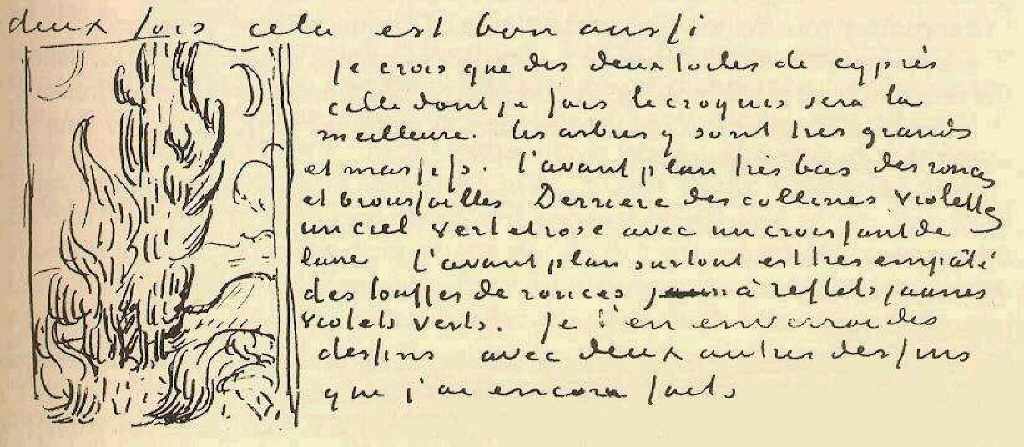 deux fois cela est bon aussi
je crois que des deux toiles de cyprès
celle dont je fais le croquis sera la
meilleure. les arbres y sont très grands
et massifs. l'avant plan très bas des ronces
et broussailles Derrière des collines violettes
un ciel vert et rose avec un croissant de
lune L'avant plan surtout est très empâté
des touffes de ronces à reflets jaunes
violets verts. Je t'en enverrai des
dessins avec deux autres dessins
que j'ai encore faits